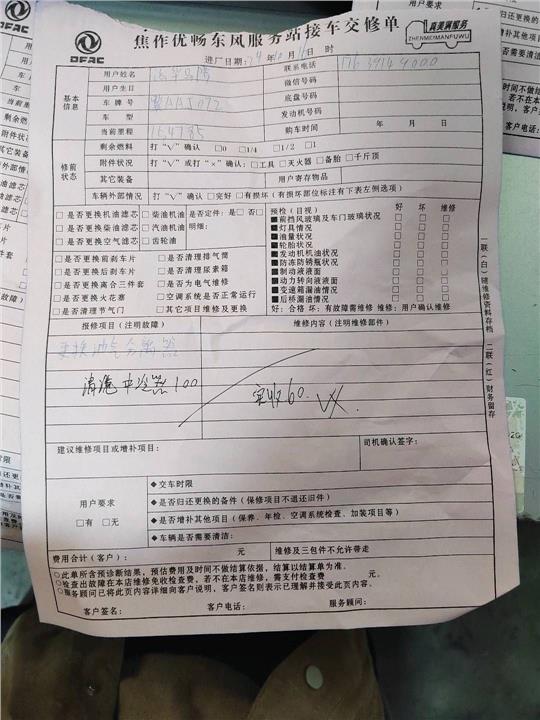 DFAC
焦作优畅东风服务站接车交修单
真美满服务
ZHENMEIMANFUWU
进厂日期: 年 月 日 时
基本信息
用户姓名
联系电话
用户生日
微信号码
车牌号
底盘号码
车 型
发动机号码
当前里程
购车时间 年 月 日
修前状态
剩余燃料 打"√"确认 □0 □1/4 □1/2 □1
附件状况 打"√"或打"×"确认:□工具 □灭火器 □备胎 □千斤顶
其它装备
用户寄存物品
车辆外部情况 打"√"确认 □完好 □有损坏(有损坏部位标注有下表左侧选项)
□是否更换机油滤芯 □柴油机油 是否定件:是 □否□
□是否更换柴油滤芯 □汽油机油 明细:
□是否更换空气滤芯 □齿轮油
□是否更换前刹车片 □是否清理排气筒
□是否更换后刹车片 □是否清理尿素箱
□是否更换离合三件套 □是否为电气维修
□是否更换火花塞 □空调系统是否正常运行
□是否清理节气门 □其它项目维修及更换
预检(目视) 好 坏 维修
■前挡风玻璃及车门玻璃状况 □ □ □
■灯具情况 □ □ □
■油量状况 □ □ □
■轮胎状况 □ □ □
■发动机机油状况 □ □ □
■防冻防锈瓶状况 □ □ □
■制动液液面 □ □ □
■动力转向液液面 □ □ □
■变速箱漏油情况 □ □ □
■后桥漏油情况 □ □ □
好:合格 坏:有故障需维修 维修:用户确认维修
报修项目(注明故障)
维修内容(注明维修部件)
更换油气分离器
清洗中冷器100
实收60.
建议维修项目或增补项目:
司机确认签字:
用户要求
□有 □无
◆交车时限
◆是否归还更换的备件(保修项目不退还旧件)
◆是否增补其他项目(保养、年检、空调系统检查、加装项目等)
◆车辆是否需要清洁:
费用合计(客户): 元
维修及三包件不允许带走
○此单所含预诊断结果,预估费用及时间不做结算依据,结算以结算单为准。
○检查出故障在本店维修免收检查费,若不在本店维修,需支付检查费 元。
○服务顾问已将此页内容详细向客户说明,客户签名则表示已理解并接受此页内容。
客户签名: 客户电话: 服务顾问:
一联(白)随维修资料存档
二联(红)财务留存